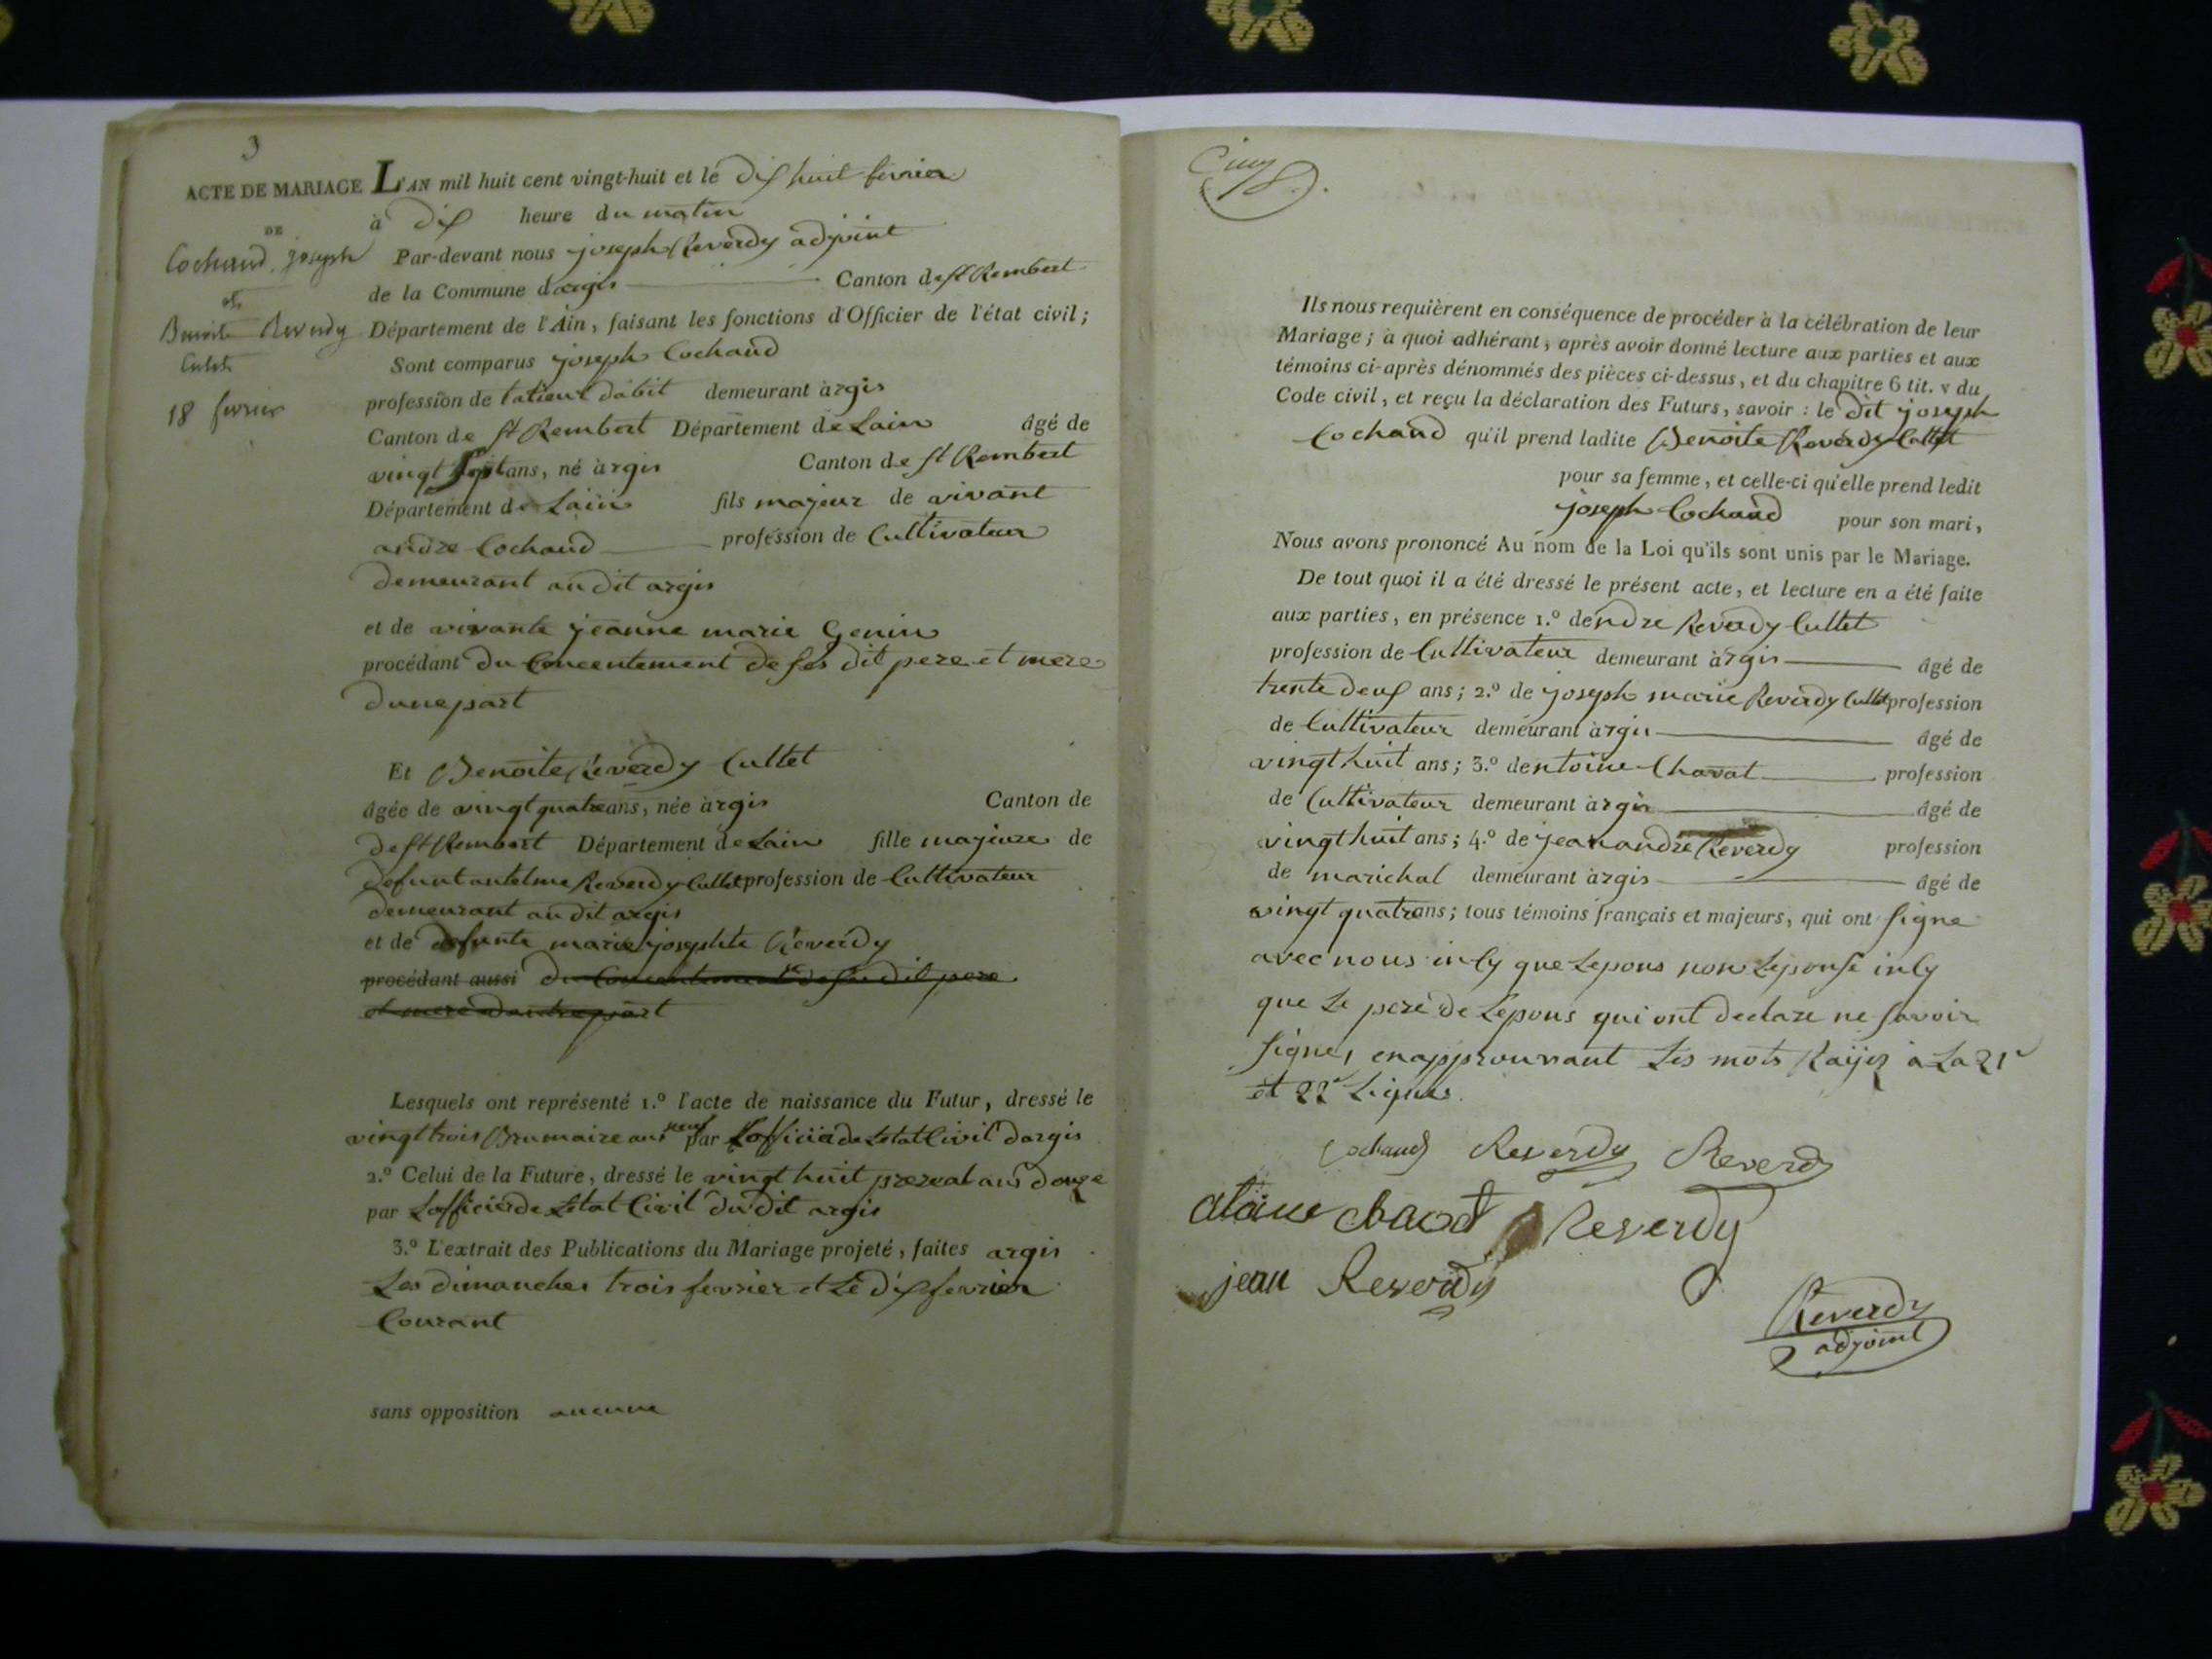 3
ACTE DE MARIAGE
DE
Cochaud joseph
et
Benoite Reverdy
Cultet
18 fevrier
L'AN mil huit cent vingt-huit et le dix huit fevrier
à dix heure du matin
Par-devant nous joseph Reverdy adjoint
de la Commune dargis Canton de st Rembert
Département de l'Ain, faisant les fonctions d'Officier de l'état civil;
Sont comparus joseph Cochaud
profession de talieur dabit demeurant àrgis
Canton de st Rembert Département de Lain âgé de
vingt sept ans, né àrgis Canton de st Rembert
Département de Lain fils majeur de vivant
andre Cochaud profession de Cultivateur
demeurant audit argis
et de vivante jeanne marie Genin
procédant du Concentement de ses dit pere et mere
dune part
Et Benoite Reverdy Cultet
âgée de vingt quatre ans, née àrgis Canton de
de st Rembert Département de Lain fille majeure de
defunt antelme Reverdy Cultet profession de Cultivateur
demeurant audit argis
et de defunte marie josephte Reverdy
procédant aussi du Concentement de ses dit pere
et mere dautre part
Lesquels ont représenté 1.º l'acte de naissance du Futur, dressé le
vingt trois Brumaire ans neuf par Lofficié de Letat Civil dargis
2.º Celui de la Future, dressé le vingt huit prereal ans douze
par Lofficier de Letat Civil du dit argis
3.º L'extrait des Publications du Mariage projeté, faites argis
Les dimanches trois fevrier et Le dix fevrier
Courant
sans opposition aucune
Cinq
Ils nous requièrent en conséquence de procéder à la célébration de leur
Mariage; à quoi adhérant, après avoir donné lecture aux parties et aux
témoins ci-après dénommés des pièces ci-dessus, et du chapitre 6 tit. v du
Code civil, et reçu la déclaration des Futurs, savoir : le dit joseph
Cochaud qu'il prend ladite Benoite Reverdy Cultet
pour sa femme, et celle-ci qu'elle prend ledit
joseph Cochaud pour son mari,
Nous avons prononcé Au nom de la Loi qu'ils sont unis par le Mariage.
De tout quoi il a été dressé le présent acte, et lecture en a été faite
aux parties, en présence 1.º dendre Reverdy Cultet
profession de Cultivateur demeurant àrgis âgé de
trente deux ans; 2.º de joseph marie Reverdy Cultet profession
de Cultivateur demeurant àrgis âgé de
vingt huit ans; 3.º dentoine Chavat profession
de Cultivateur demeurant àrgis âgé de
vingt huit ans; 4.º de jean andre Reverdy profession
de marichal demeurant àrgis âgé de
vingt quatre ans; tous témoins français et majeurs, qui ont signe
avec nous incy que Lepous non Lepouse incy
que Le pere de Lepous qui ont declare ne savoir
signer, en approuvant Les mots Rayez à La 21e
et 22e Lignes.
Cochaud Reverdy Reverdy
Reverdy
jean Reverdy
Reverdy
adjoint